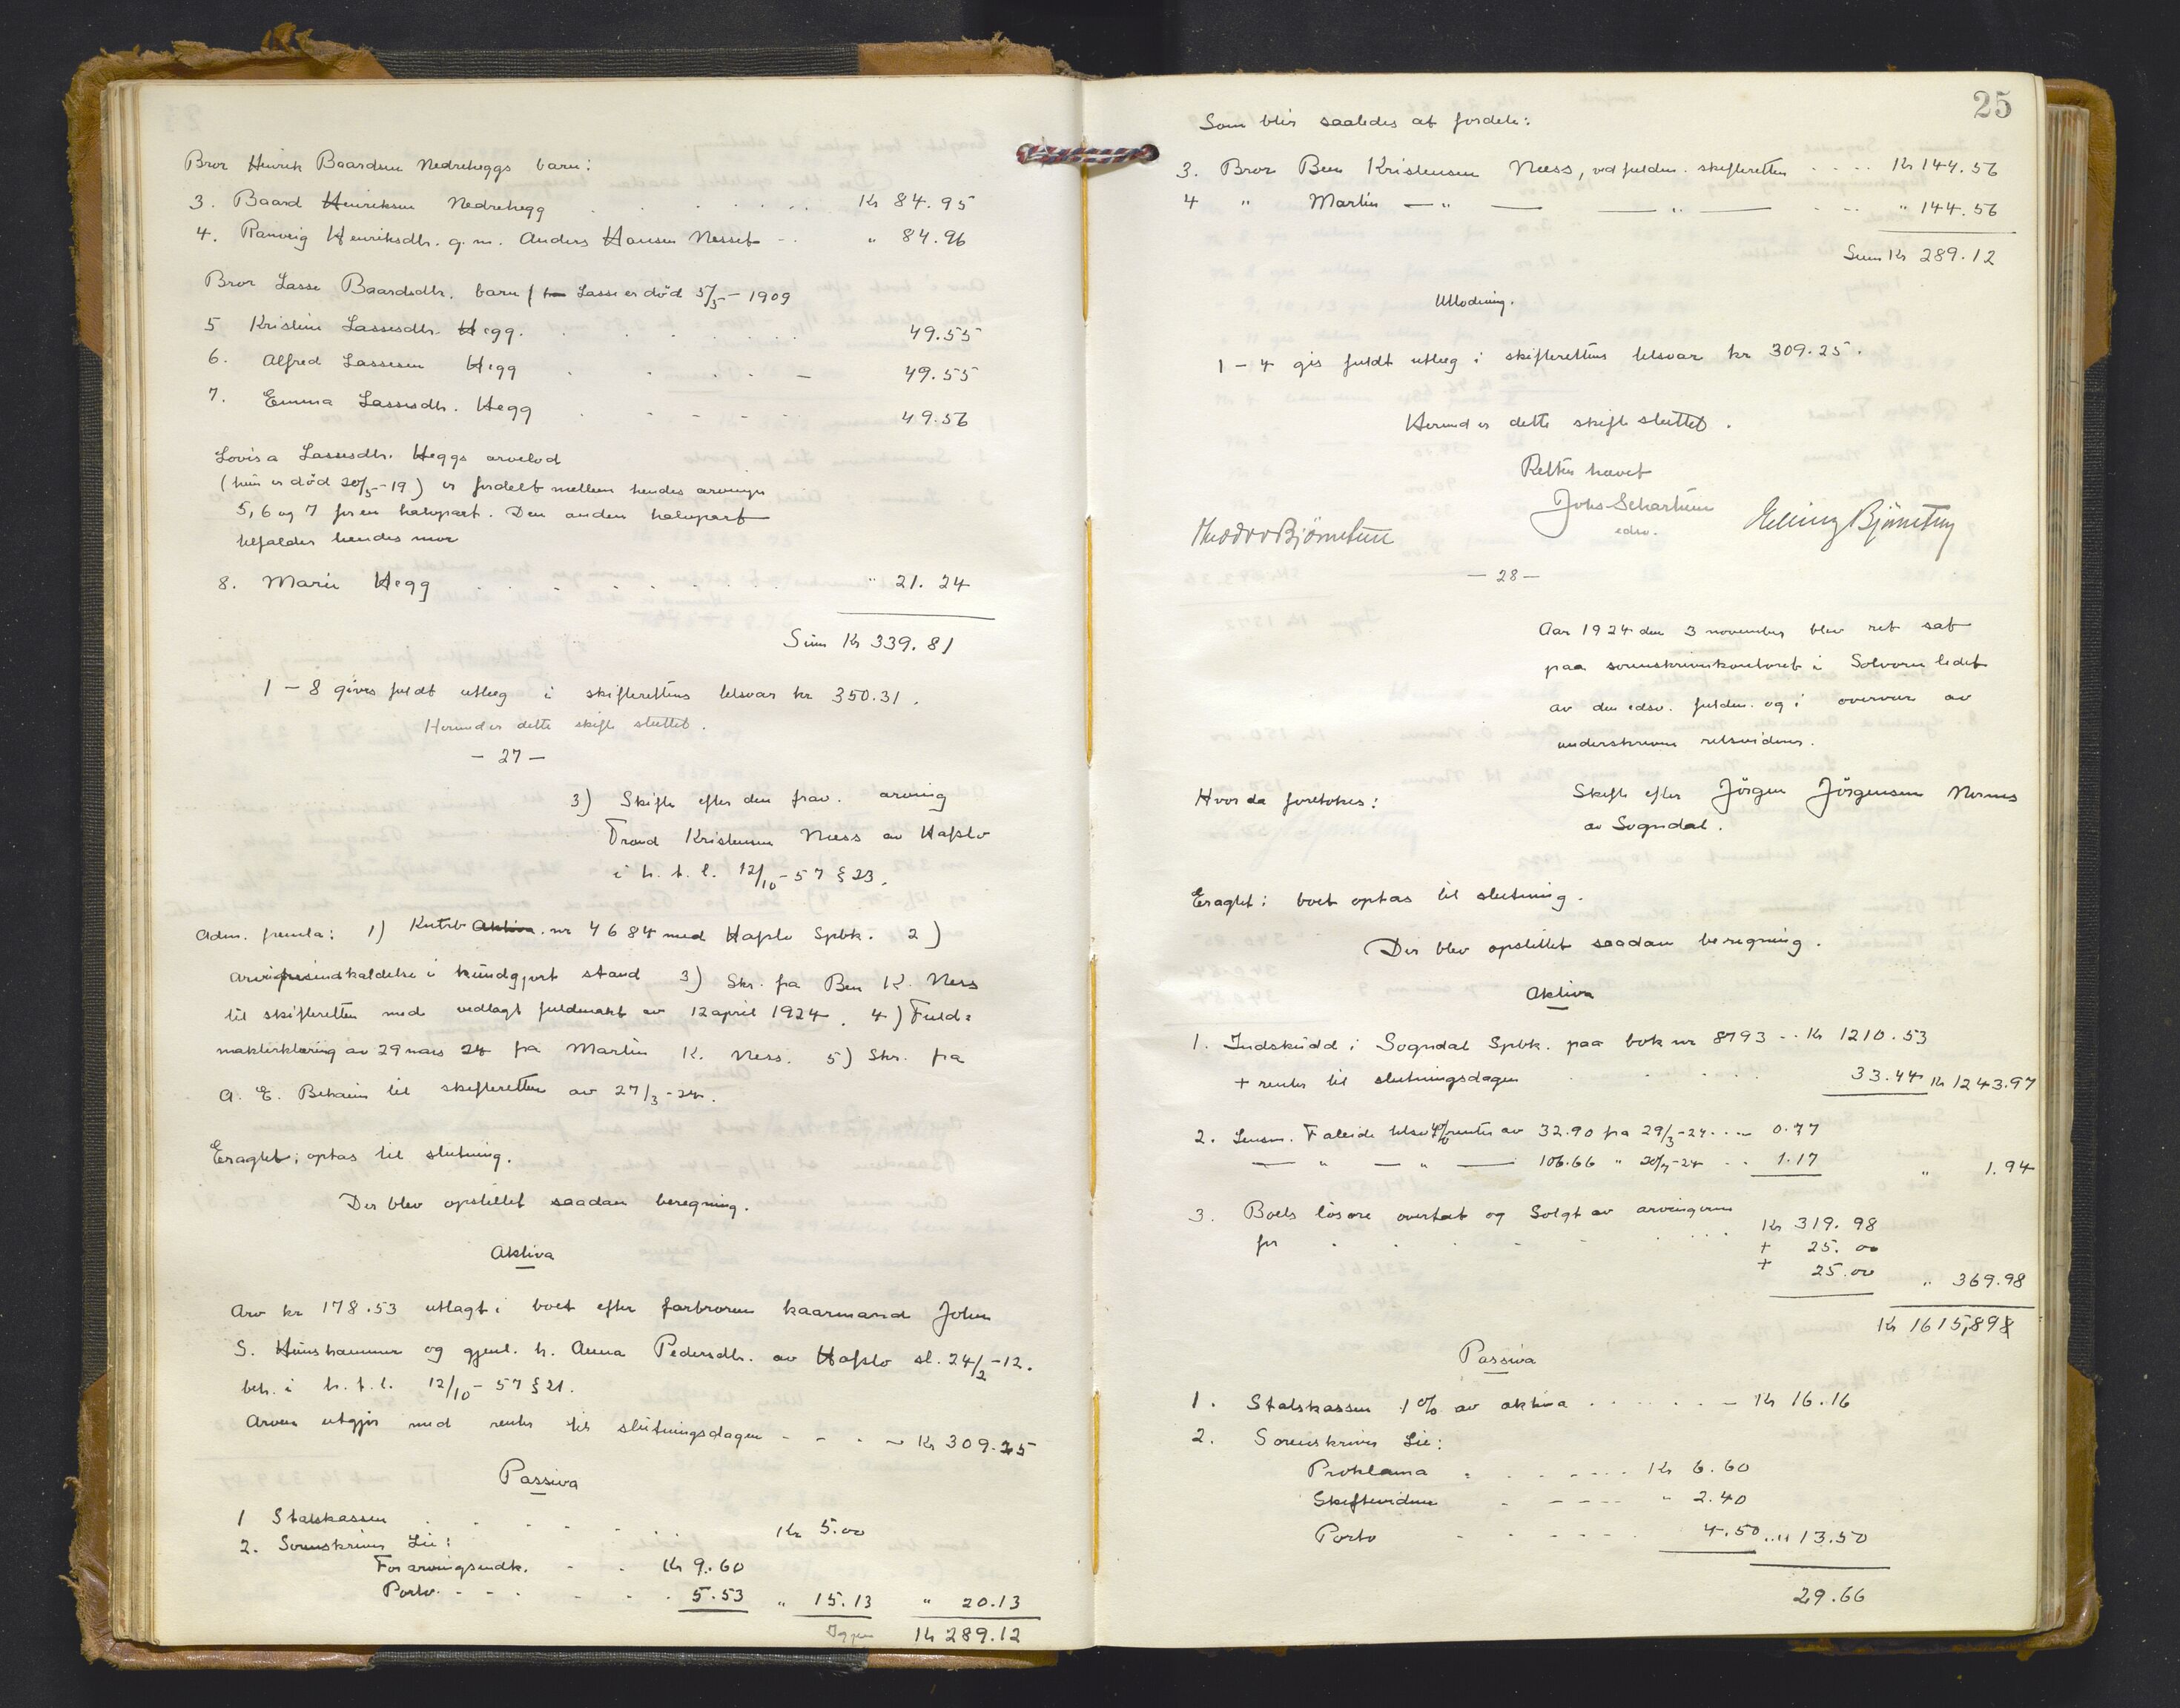 Bror Henrik Baardsen Nedreheggs barn:
3. Baard Henriksen Nedrehegg . . . . . . Kr 84.95
4. Ranveig Henriksdtr. g. m. Anders Hansen Nesset - . " 84.96
Bror Lasse Baardsdtr. barn ( Lasse er död 5/5 - 1909
5 Kristine Lassesdtr. Hegg. . . . . . 49.55
6. Alfred Lassesen Hegg . . . . - 49.55
7. Emma Lassesdtr. Hegg . - - - - 49.56
Lovisa Lassesdtr. Heggs arvelod
(hun er död 20/5-19) er fordelt mellem hendes arvinger
5, 6 og 7 for en halvpart. Den anden halvpart
tilfalder hendes mor
8. Marie Hegg . . . . . . . " 21.24
Sum Kr 339.81
1 - 8 gives fuldt utlæg i skifterettens tilsvar kr 350.31.
Hermed er dette skifte sluttet.
- 27 -
3) Skifte efter den frav. arving
Trond Kristensen Næss av Hafslo
i h. t. l. 12/10 - 57 § 23.
Adm. fremla: 1) Kntrb Aktiva. nr 4684 med Hafslo Spbk. 2)
arvingsindkaldelse i kundgjort stand 3) Skr. fra Ben K. Ness
til skifteretten med vedlagt fuldmakt av 12 april 1924. 4) Fuld=
makterklæring av 29 mars 24 fra Martin K. Ness. 5) Skr. fra
A. E. Behaim til skifteretten av 27/3-24.
Eragtet; optas til slutning.
Der blev opstillet saadan beregning.
Aktiva
Arv kr 178.53 utlagt i boet efter farbroren kaarmand John
S. Hunshammer og gjenl. h. Anna Pedersdtr. av Hafslo sl. 24/2-12.
beh. i h. t. l. 12/10 - 57 § 21.
Arven utgjör med renter til slutningsdagen - - . - Kr 309.25
Passiva
1 Statskassen . . . . . . Kr 5.00
2. Sorenskriver Lie:
For arvingsindk. - . Kr 9.60
Porto. - - . - . . 5.53 " 15.13 " 20.13
Igjen Kr 289.12
25
Som blir saaledes at fordele:
3. Bror Ben Kristensen Næss, ved fuldm. skifteretten . . . . Kr 144.56
4 " Martin - " - - " - . - - " 144.56
Sum Kr 289.12
Utlodning.
1 - 4 gis fuldt utlæg i skifterettens tilsvar kr 309.25.
Hermed er dette skifte sluttet.
Retten hævet
Johs Schartum
edsv.
Theodor Bjørnetun
Elling Bjørnetun
- 28 -
Aar 1924 den 3 november blev ret sat
paa sorenskriverkontoret i Solvorn ledet
av den edsv. fuldm. og i overvær av
underskrevne retsvidner.
Hvor da foretokes:
Skifte efter Jörgen Jörgensen Nornes
av Sogndal.
Eragtet: boet optas til slutning.
Der blev opstillet saadan beregning.
Aktiva
1. Indskudd i Sogndal Spbk. paa bok nr 8793 - . Kr 1210.53
+ renter til slutningsdagen . . . . 33.44 Kr 1243.97
2. Lensm. Faleide tilsv 4% renter av 32.90 fra 29/3-24 . . . 0.77
- " - " - 106.66 " 20/7-24 . . 1.17 " 1.94
3. Boets lösöre overtat og solgt av arvingerne
for . . . . . . . Kr 319.98
+ 25.00
+ 25.00 " 369.98
Kr 1615,89
Passiva
1. Statskassen 1% av aktiva . . . . . - Kr 16.16
2. Sorenskriver Lie:
Proklama . . . . . . . Kr 6.60
Skiftevidner . - - - - " 2.40
Porto - . . . . . 4.50 .. " 13.50
29.66